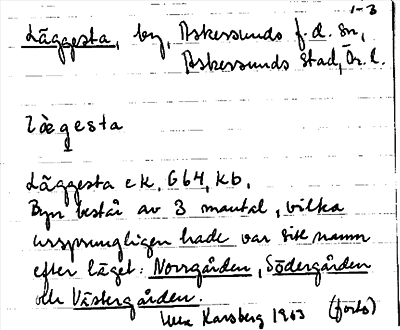 1-3
Läggesta, by, Askersunds f.d. sn,
Askersunds stad, Ör. l.
lägesta
Läggesta ek. 664, kb.
Byn består av 3 mantal, vilka
ursprungligen hade var sitt namn
efter läget: Norrgården, Södergården
och Västergården.
Karsberg 1963 (forts)